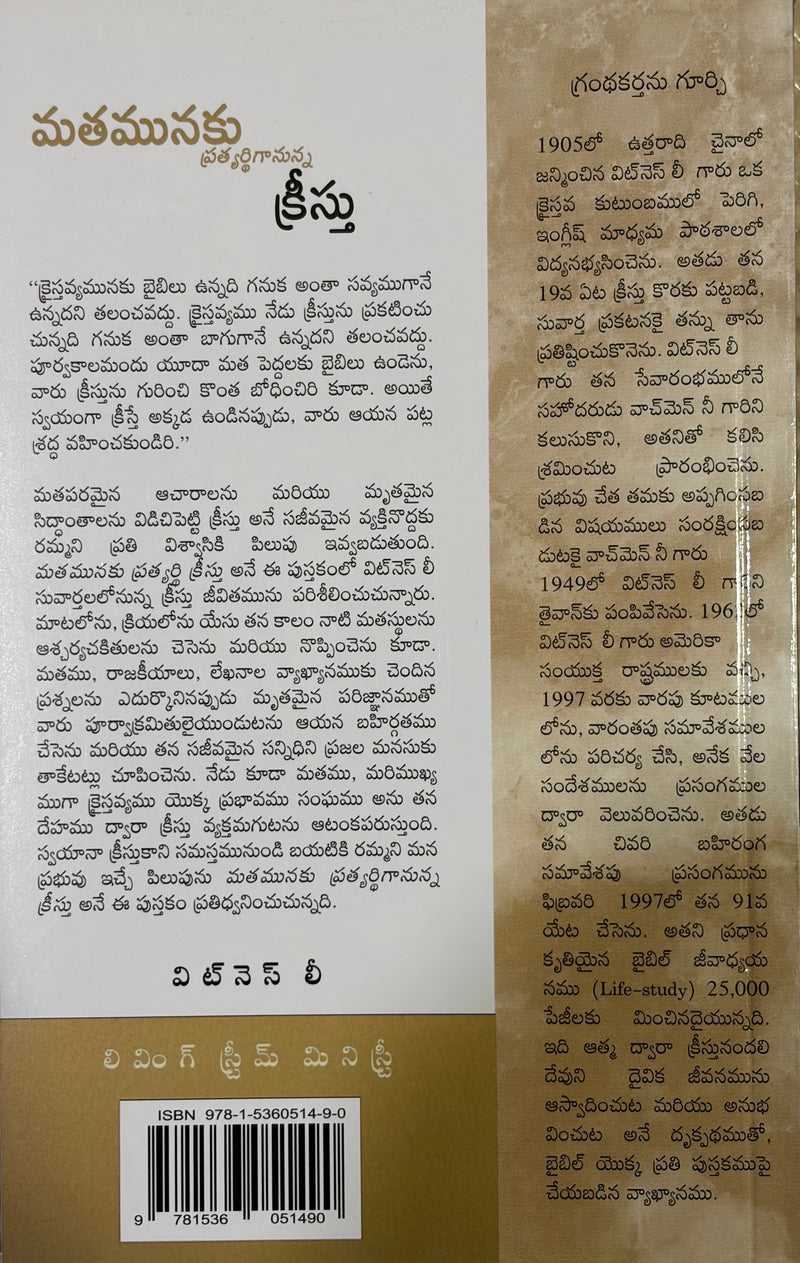 మతమునకు
ప్రత్యర్థిగానున్న
క్రీస్తు
“క్రైస్తవ్యమునకు బైబిలు ఉన్నది గనుక అంతా సవ్యముగానే
ఉన్నదని తలంచవద్దు. క్రైస్తవ్యము నేడు క్రీస్తును ప్రకటించు
చున్నది గనుక అంతా బాగుగానే ఉన్నదని తలంచవద్దు.
పూర్వకాలమందు యూదా మత పెద్దలకు బైబిలు ఉండెను,
వారు క్రీస్తును గురించి కొంత బోధించిరి కూడా. అయితే
స్వయంగా క్రీస్తే అక్కడ ఉండినప్పుడు, వారు ఆయన పట్ల
శ్రద్ధ వహించకుండిరి.”
మతపరమైన ఆచారాలను మరియు మృతమైన
సిద్ధాంతాలను విడిచిపెట్టి క్రీస్తు అనే సజీవమైన వ్యక్తినొద్దకు
రమ్మని ప్రతి విశ్వాసికి పిలుపు ఇవ్వబడుతుంది.
మతమునకు ప్రత్యర్థి క్రీస్తు అనే ఈ పుస్తకంలో విట్‌నెస్ లీ
సువార్తలలోనున్న క్రీస్తు జీవితమును పరిశీలించుచున్నారు.
మాటలోను, క్రియలోను యేసు తన కాలం నాటి మతస్థులను
ఆశ్చర్యచకితులను చెసెను మరియు నొప్పించెను కూడా.
మతము, రాజకీయాలు, లేఖనాల వ్యాఖ్యానముకు చెందిన
ప్రశ్నలను ఎదుర్కొనినప్పుడు మృతమైన పరిజ్ఞానముతో
వారు పూర్వాక్రమితులైయుండుటను ఆయన బహిర్గతము
చేసెను మరియు తన సజీవమైన సన్నిధిని ప్రజల మనసుకు
తాకేటట్లు చూపించెను. నేడు కూడా మతము, మరిముఖ్య
ముగా క్రైస్తవ్యము యొక్క ప్రభావము సంఘము అను తన
దేహము ద్వారా క్రీస్తు వ్యక్తమగుటను ఆటంకపరుస్తుంది.
స్వయానా క్రీస్తుకాని సమస్తమునుండి బయటికి రమ్మని మన
ప్రభువు ఇచ్చే పిలుపును మతమునకు ప్రత్యర్థిగానున్న
క్రీస్తు అనే ఈ పుస్తకం ప్రతిధ్వనించుచున్నది.
విట్‌నెస్ లీ
లివింగ్ స్ట్రీమ్ మినిస్ట్రీ
ISBN 978-1-5360514-9-0
9 781536 051490
గ్రంథకర్తను గూర్చి
1905లో ఉత్తరాది చైనాలో
జన్మించిన విట్‌నెస్ లీ గారు ఒక
క్రైస్తవ కుటుంబములో పెరిగి,
ఇంగ్లీష్ మాధ్యమ పాఠశాలలో
విద్యనభ్యసించెను. అతడు తన
19వ ఏట క్రీస్తు కొరకు పట్టబడి,
సువార్త ప్రకటనకై తన్ను తాను
ప్రతిష్టించుకొనెను. విట్‌నెస్ లీ
గారు తన సేవారంభములోనే
సహోదరుడు వాచ్‌మెన్ నీ గారిని
కలుసుకొని, అతనితో కలిసి
శ్రమించుట ప్రారంభించెను.
ప్రభువు చేత తమకు అప్పగింపబ
డిన విషయములు సంరక్షింపబ
డుటకై వాచ్‌మెన్ నీ గారు
1949లో విట్‌నెస్ లీ గారిని
తైవాన్‌కు పంపివేసెను. 196 లో
విట్‌నెస్ లీ గారు అమెరికా
సంయుక్త రాష్ట్రములకు వచ్చి,
1997 వరకు వారపు కూటముల
లోను, వారంతపు సమావేశముల
లోను పరిచర్య చేసి, అనేక వేల
సందేశములను ప్రసంగముల
ద్వారా వెలువరించెను. అతడు
తన చివరి బహిరంగ
సమావేశపు ప్రసంగమును
ఫిబ్రవరి 1997లో తన 91వ
యేట చేసెను. అతని ప్రధాన
కృతియైన బైబిల్ జీవాధ్యయ
నము (Life-study) 25,000
పేజీలకు మించినదైయున్నది.
ఇది ఆత్మ ద్వారా క్రీస్తునందలి
దేవుని దైవిక జీవనమును
ఆస్వాదించుట మరియు అనుభ
వించుట అనే దృక్పథముతో,
బైబిల్ యొక్క ప్రతి పుస్తకముపై
చేయబడిన వ్యాఖ్యానము.